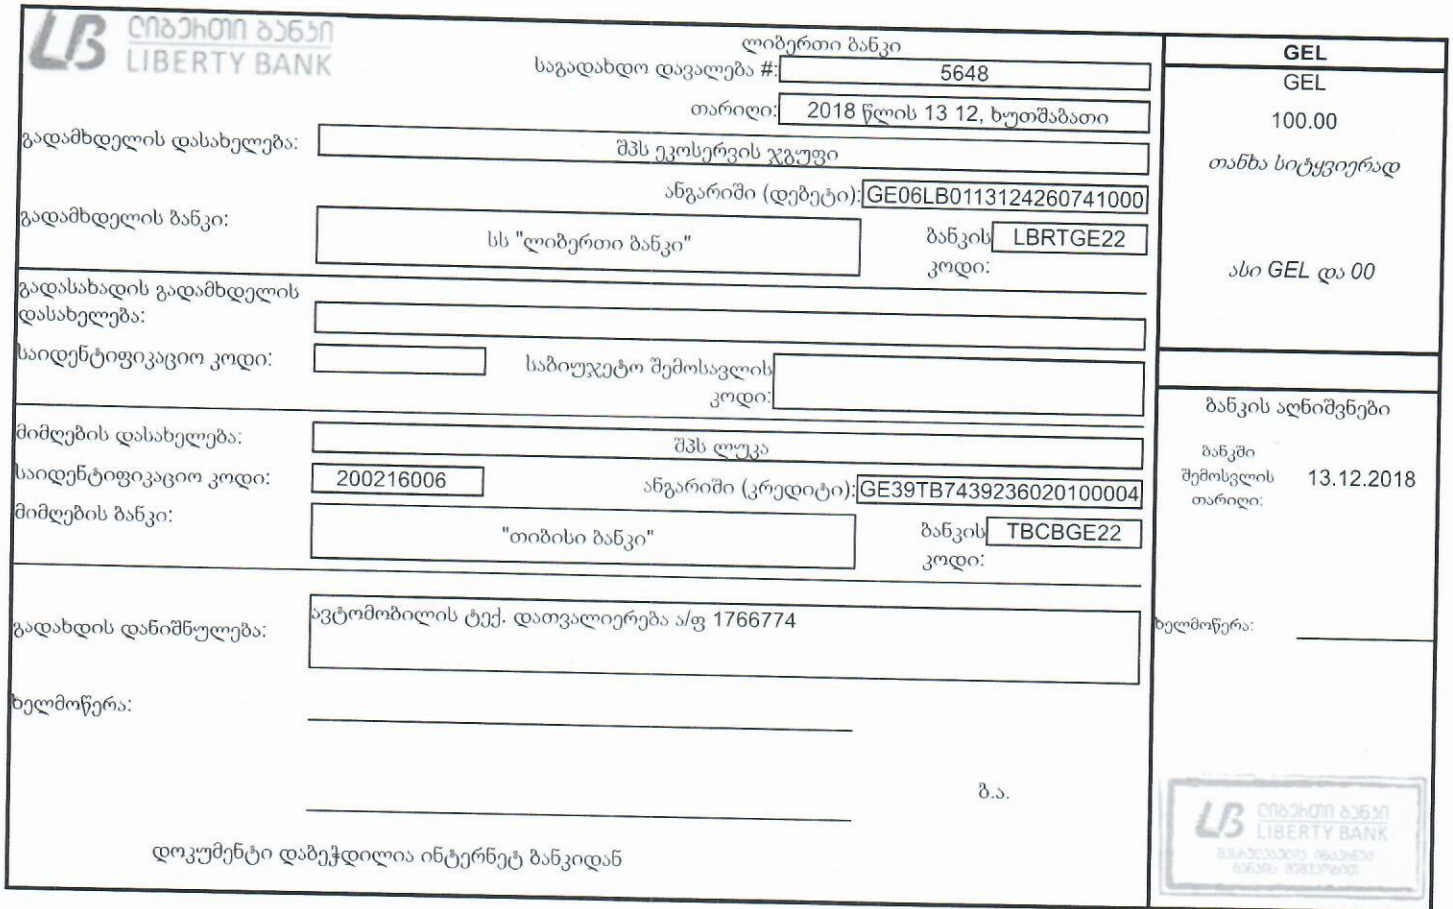 ლიბერთი ბანკი
LIBERTY BANK
ლიბერთი ბანკი
საგადახდო დავალება #: 5648
თარიღი: 2018 წლის 13 12, ხუთშაბათი
გადამხდელის დასახელება: შპს ეკოსერვის ჯგუფი
ანგარიში (დებეტი): GE06LB0113124260741000
გადამხდელის ბანკი: სს "ლიბერთი ბანკი" ბანკის კოდი: LBRTGE22
გადასახადის გადამხდელის
დასახელება:
საიდენტიფიკაციო კოდი: საბიუჯეტო შემოსავლის
კოდი:
მიმღების დასახელება: შპს ლუკა
საიდენტიფიკაციო კოდი: 200216006 ანგარიში (კრედიტი): GE39TB7439236020100004
მიმღების ბანკი: "თიბისი ბანკი" ბანკის კოდი: TBCBGE22
გადახდის დანიშნულება: ავტომობილის ტექ. დათვალიერება ა/ფ 1766774
ხელმოწერა:
ბ.ა.
დოკუმენტი დაბეჭდილია ინტერნეტ ბანკიდან
GEL
GEL
100.00
თანხა სიტყვიერად
ასი GEL და 00
ბანკის აღნიშვნები
ბანკში
შემოსვლის 13.12.2018
თარიღი:
ხელმოწერა:
ლიბერთი ბანკი
LIBERTY BANK